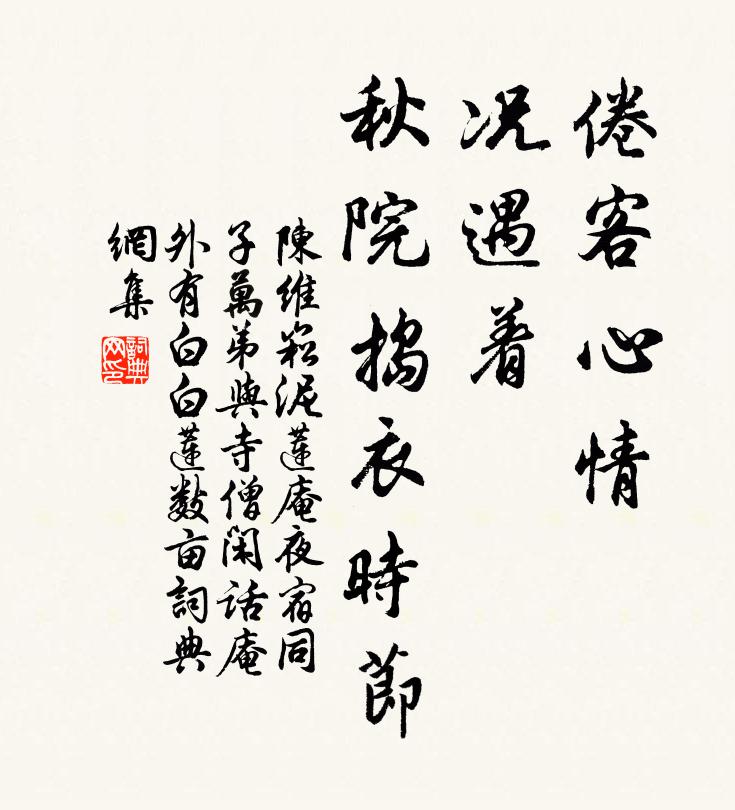 倦客心情
况遇着
秋院搗衣時節
陳維崧泥蓮庵夜宿同
子萬弟與寺僧閑話庵
外有白白蓮數亩詞典
網集
詞典網印